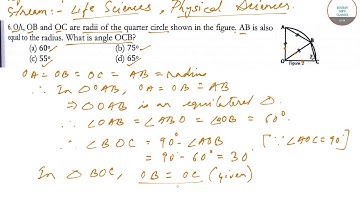 Stream:- Life Sciences, Physical Sciences.
6. OA, OB and OC are radii of the quarter circle shown in the figure. AB is also
equal to the radius. What is angle OCB?
(a) 60° (b) 75°
(c) 55° (d) 65°
A
B
O
C
Figure
OA = OB = OC = AB = radius
∴ In △OAB, OA = OB = AB
⇒ △OAB is an equilateral △.
∴ ∠OAB = ∠ABO = ∠AOB = 60°
∴ ∠BOC = 90° - ∠AOB [∵ ∠AOC = 90°]
= 90° - 60° = 30
In △BOC, OB = OC (given)